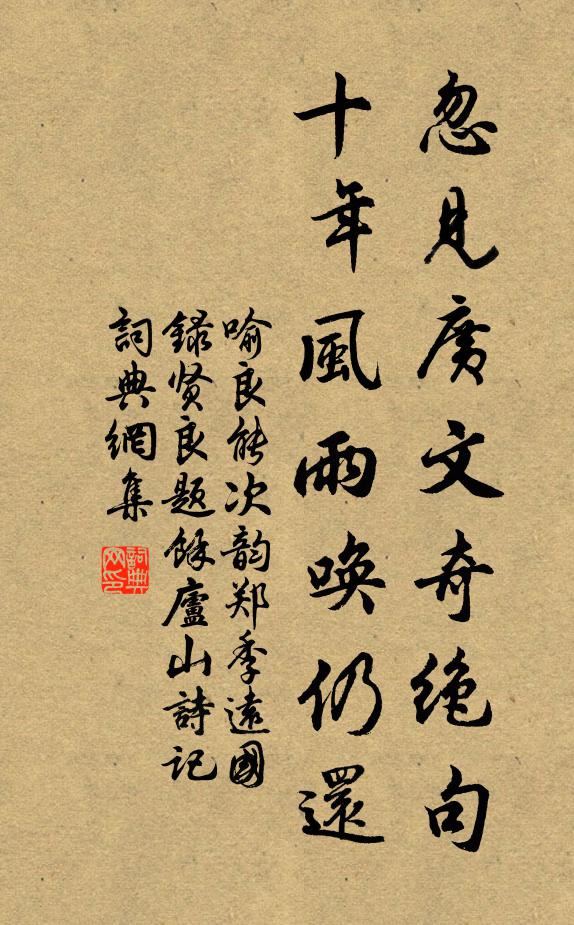 忽見廣文奇絶句
十年風雨喚仍還
喻良能次韵郑季遠國
録贤良题餘廬山詩记
詞典網集
詞典网印